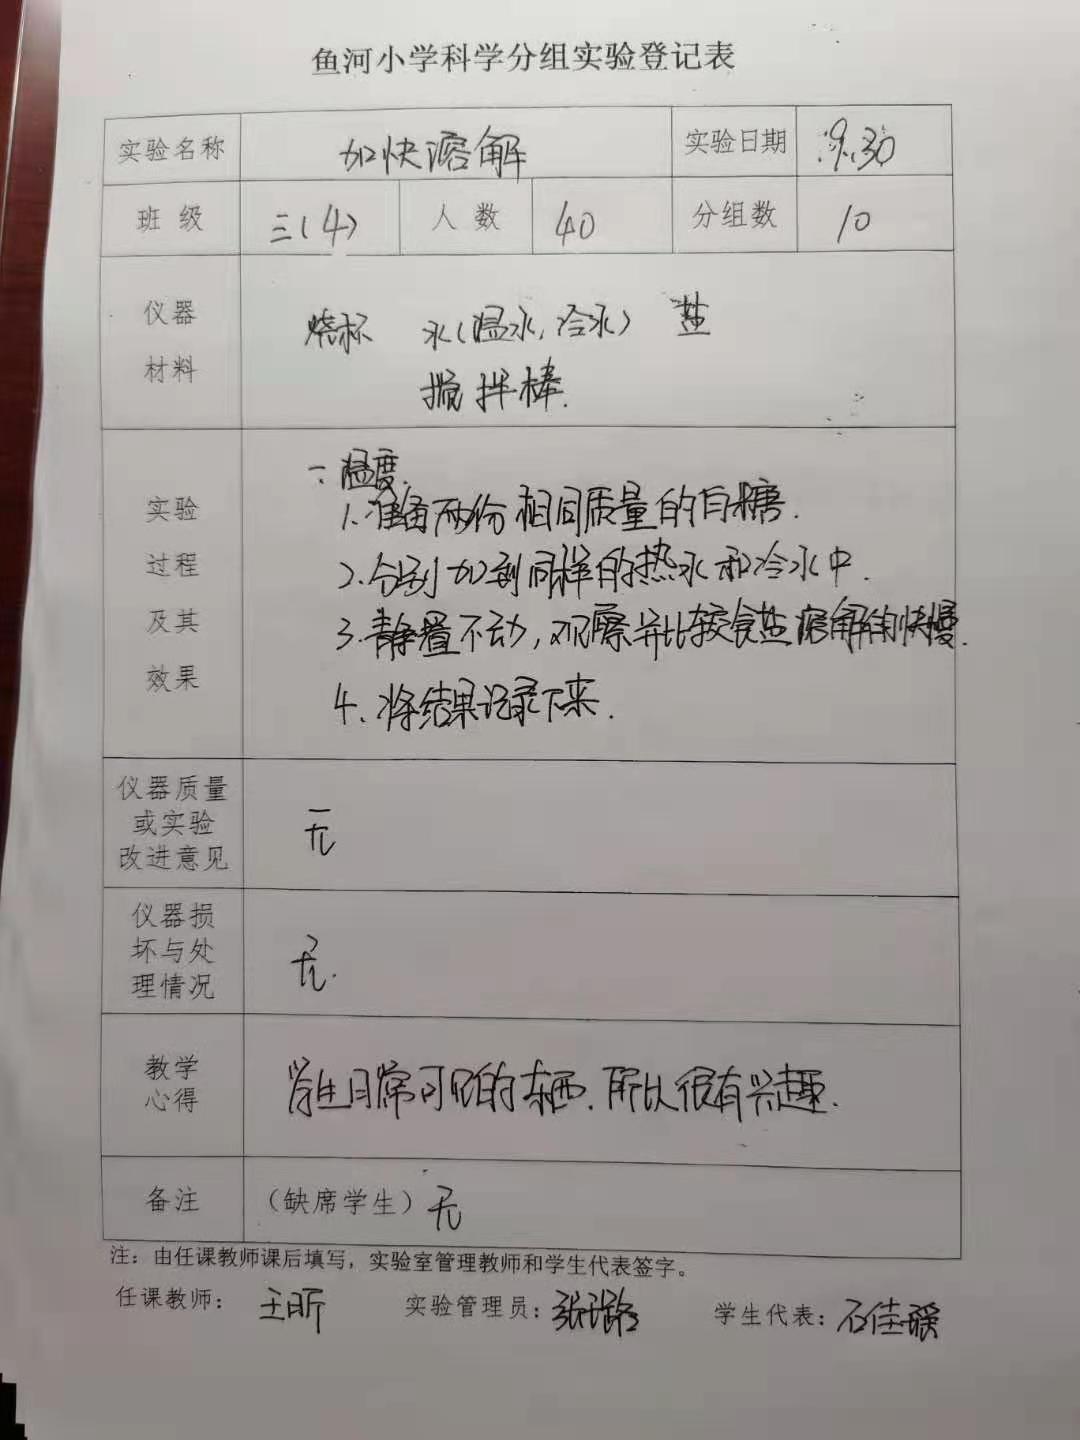 鱼河小学科学分组实验登记表
实验名称 加快溶解 实验日期 9.30
班 级 三(4) 人 数 40 分组数 10
仪器
材料
烧杯 水(温水,冷水) 盐
搅拌棒.
实验
过程
及其
效果
一.温度.
1.准备两份相同质量的白糖.
2.分别加到同样的热水和冷水中.
3.静置不动,观察并比较食盐溶解的快慢.
4、将结果记录下来.
仪器质量
或实验
改进意见
无
仪器损
坏与处
理情况
无.
教学
心得
学生日常可见的东西.所以很有兴趣.
备注 (缺席学生) 无
注：由任课教师课后填写，实验室管理教师和学生代表签字。
任课教师： 王昕 实验管理员： 张 学生代表： 石佳瑶